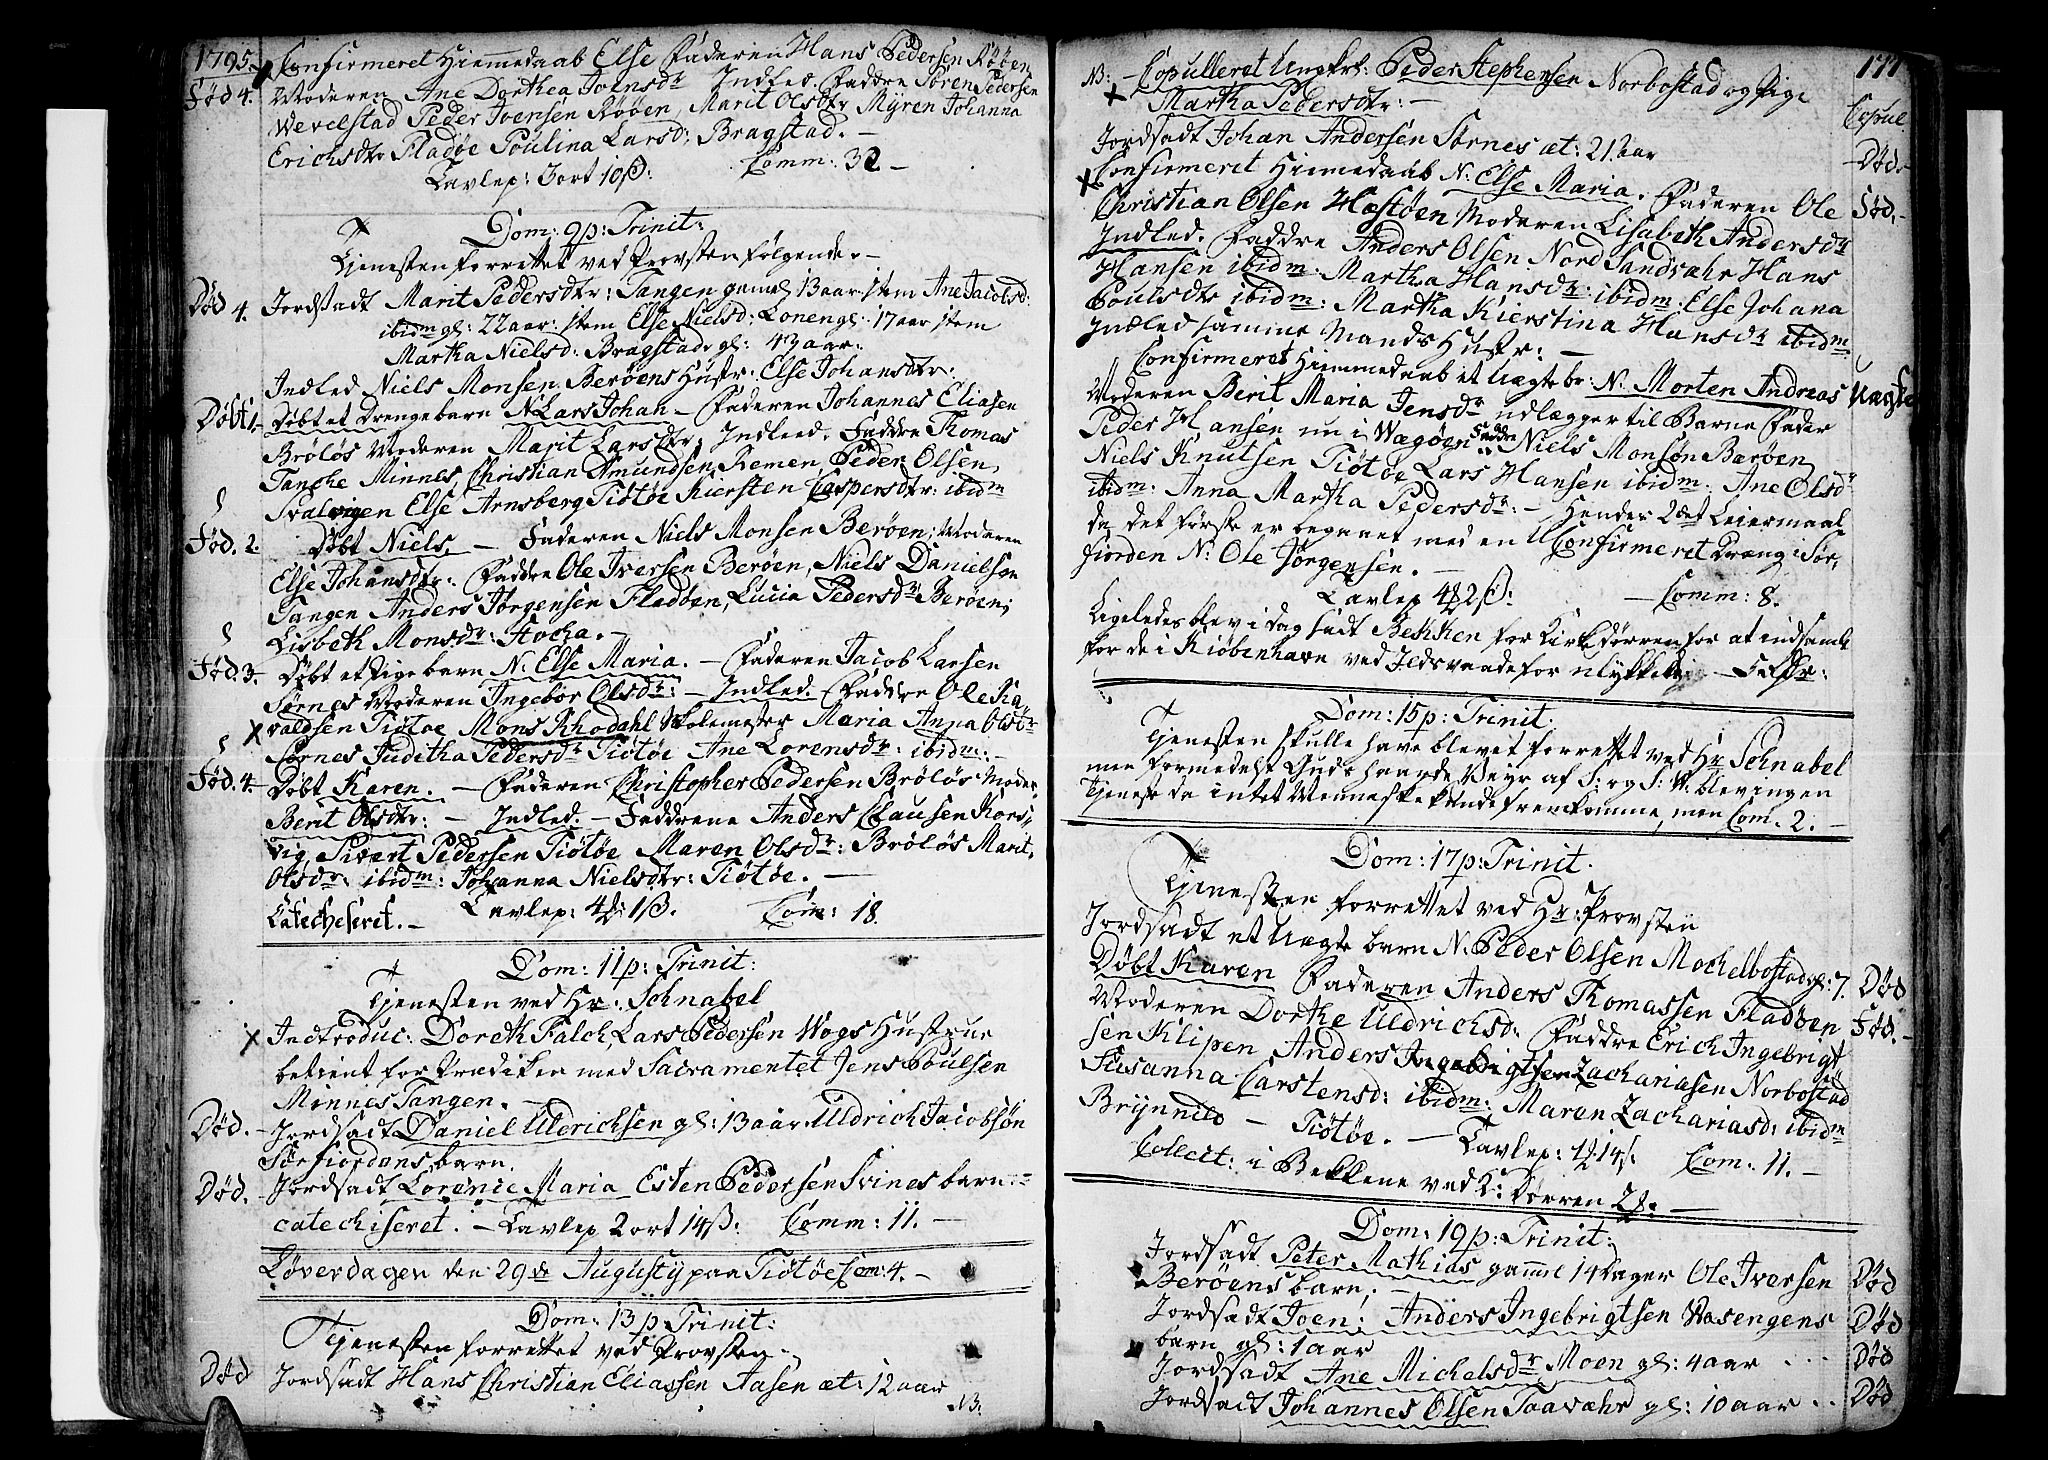 1795. Confirmeret Hiemmedaab Else Faderen Hans Pedersen Rööen
Fød 4. Moderen Ane Dorthea Joensdr Indled Faddre Sören Pedersen
Wevelstad Peder Joensen Röøen, Marit Olsdtr Mÿren Johanna
Erichsdtr Fladøe Poulina Larsd: Bragstad. –
Tavlep: 3 ort 10 ß: Comm: 32 –
Dom: 9 p: Trinit:
Tjenesten forrettet ved Provsten følgende. –
Død 4. Jordsadt Marit Pedersdtr: Tangen gamel 13 aar item Ane Jacobsd:
ibidm gl: 22 aar: item Else Nielsd: Lonen gl: 17 aar item
Martha Nielsd: Bragstad gl: 43 aar:
Indled Niels Monsen Berøens Hustr: Else Johansdtr.
Døbt 1. Døbt et Drengebarn N. Lars Johan – Faderen Johannes Eliasen
Brøløs Moderen Marit Larsdtr, Indleed. Faddre Thomas
Tanche Minnes, Christian Amundsen Remen, Peder Olsen
Svalvigen Else Arnsberg Tiøtøe Kiersten Caspersdtr: ibidm
Fød. 2. Døbt Niels, – Faderen Niels Monsen Berøen; Moderen
Else Johansdtr: Faddre Ole Iversen Berøen, Niels Danielsen
Tangen Anders Jørgensen Fladøen, Lucia Pedersdr Berøen;
Lisbeth Monsdr: Hocha. –
Fød. 3. Døbt et Pigebarn N. Else Maria. – Faderen Jacob Larsen
Sørnes Moderen Ingebor Olsdr: – Indled. Faddre Ole Ra,
valdsen Tiøtøe Mons Rhodahl Skolemester Maria Anna Olsdr
Sørnes Juditha Pedersdr Tiøtøe Ane Lorensdr: ibidm: –
Fød. 4. Døbt Karen. – Faderen Christopher Pedersen Brøløs Moder,
Berit Olsdtr: – Indled. – Faddrene Anders Clausen Kors,
vig, Sivert Pedersen Tiøtøe Maren Olsdr: Brøløs Marit
Olsdr: ibidm: Johanna Nielsdtr: Tiøtøe. –
Catecheseret. – Tavlep: 4 1 ß. Com: 18.
Dom: 11 p: Trinit:
Tjenesten ved Hr: Schnabel
Indtroduc: Doreth Falch, Lars Pedersen Wogs Hustrue
betient for Prædiken med Sacramentet Jens Poulsen
Minnes Tangen. –
Død. Jordsadt Daniel Uldrichsen gl: 13 aar Uldrich Jacobsøn
Sørfiordens barn.
Død. Jordsadt Lorenie Maria Esten Pedersen Svines barn
catechiseret. – Tavlep 2 ort 14 ß: Comm: 11. –
Løverdagen den 29de Augusty paa Tiøtøe Com: 4. –
Dom: 13 p Trinit:
Tjenesten forrettet ved Provsten.
Død Jordsadt Hans Christian Eliassen Aasen æt: 12 aar
NB.
177
NB: – Copulleret Ungkrl: Peder Stephensen Norbostad og Pige Copul.
Martha Pedersdtr: –
Jordsadt Johan Andersen Sørnes æt: 21 aar Død.
Confirmeret Hiemmedaab N. Else Maria. Faderen Ole Fød.
Christian Olsen Hæstøen Moderen Lisabeth Andersdr
Indled. Faddre Anders Olsen Nord Sandvahr Hans
Hansen ibidm: Martha Hansdr: ibidm: Else Johana
Poulsdtr ibidm: Martha Kierstina Hansdr ibidm:
Indled samme Mands Hustr: –
Confirmeret Hiemmedaab et Uægte br: N. Morten Andreas Uægte
Moderen Berit Maria Jensdr udlægger til Barne Fader
Peder Hansen nu i Wægøen Faddre Niels Monsøn Barøen
Niels Knutsen Tiøtøe Lars Hansen ibidm: Ane Olsdr
ibidm. Anna Martha Pedersdr: – Hendes 2det Leiermaal
da det første er begaaet med en UConfirmeret Dreng i Sør,
fiorden N: Ole Jørgensen. –
Tavlep 4 2 ß: – Comm: 8.
Ligeledes blev i dag sadt Bekken for Kirkedørren for at indsamle
for de i Kiøbenhavn ved Ildsvaade forulykkede
Dom: 15 p: Trinit.
Tjenesten skulle have blevet forrettet ved Hr Schnabel
men formedelst Guds haarde Veyr af S: og S: W. blev ingen
Tjeneste da intet Menneske kunde fremkomme, men Com. 2. –
Dom: 17 p: Trinit.
Tjenesten forrettet ved Hr: Provsten
Jordsadt et Uægte barn N. Peder Olsen Mochelbostad gl: 7. Død
Døbt Karen Faderen Anders Thomassen Fladøen Fød.
Moderen Dorthe Uldrichsd: Faddre Erich Ingebrigt
sen Klipen, Anders Zachariasen Norbostad
Susanna Carstensd: ibidm: Maren Zachariasd: ibidm
Brÿnnild – Tiøtøe. – Tavlep: 1 14 ß: Com: 11. –
Collect: i Bekkene ved K: Dørren 28. –
Dom: 19 p: Trinit:
Jordsadt Peter Mathias gammel 14 Dager Ole Iversen Død
Berøens barn. –
Jordsadt Joen; Anders Ingebrigtsen Stasengens Død
barn gl: 1 aar
Jordsadt Ane Michelsdr Moen gl: 4 aar Død
Jordsadt Johannes Olsen Taavahr gl: 10 aar Død